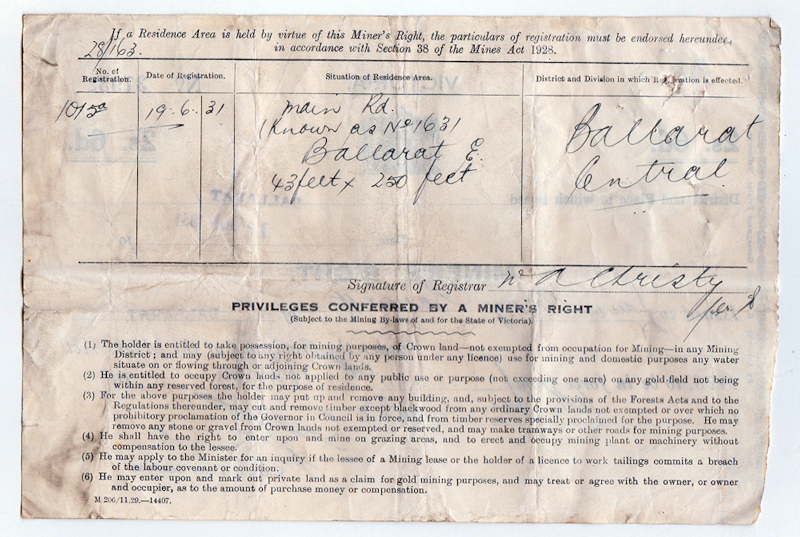 If a Residence Area is held by virtue of this Miner's Right, the particulars of registration must be endorsed hereunder,
in accordance with Section 38 of the Mines Act 1928.
28/163.
No. of Registration.
Date of Registration.
Situation of Residence Area.
District and Division in which Registration is effected.
19.6.31
Main Rd.
(Known as No 1631
Ballarat E.
43 feet x 250 feet
Ballarat
Central
Signature of Registrar W A Christy
PRIVILEGES CONFERRED BY A MINER'S RIGHT
(Subject to the Mining By-laws of and for the State of Victoria).
(1) The holder is entitled to take possession, for mining purposes, of Crown land—not exempted from occupation for Mining—in any Mining
District; and may (subject to any right obtained by any person under any licence) use for mining and domestic purposes any water
situate on or flowing through or adjoining Crown lands.
(2) He is entitled to occupy Crown lands not applied to any public use or purpose (not exceeding one acre) on any gold-field not being
within any reserved forest, for the purpose of residence.
(3) For the above purposes the holder may put up and remove any building, and, subject to the provisions of the Forests Acts and to the
Regulations thereunder, may cut and remove timber except blackwood from any ordinary Crown lands not exempted or over which no
prohibitory proclamation of the Governor in Council is in force, and from timber reserves specially proclaimed for the purpose. He may
remove any stone or gravel from Crown lands not exempted or reserved, and may make tramways or other roads for mining purposes.
(4) He shall have the right to enter upon and mine on grazing areas, and to erect and occupy mining plant or machinery without
compensation to the lessee.
(5) He may apply to the Minister for an inquiry if the lessee of a Mining lease or the holder of a licence to work tailings commits a breach
of the labour covenant or condition.
(6) He may enter upon and mark out private land as a claim for gold mining purposes, and may treat or agree with the owner, or owner
and occupier, as to the amount of purchase money or compensation.
M 206/11.29.—14407.